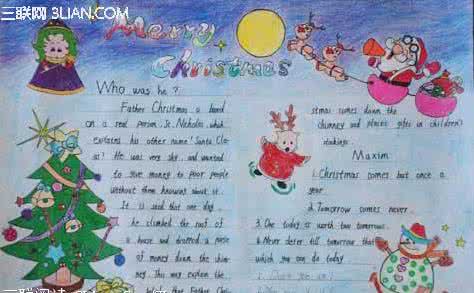 三联网 3LIAN.COM
Merry
Christmas
Who was he?
Father Christmas is based
on a real person, St. Nicholas, which
explains his other name 'Santa Cla-
us'. He was very shy, and wanted
to give money to poor people
without them knowing about it.
It is said that one day,
he climbed the roof of
a house and dropped a purse
of money down the chim-
ney. This may explain the
that Father Chri
stmas comes down the
chimney and places gifts in children's
stockings.
Maxim
1. Christmas comes but once a
year.
2. Tomorrow comes never.
3. One today is worth two tomorrow.
4. Never defer till tomorrow that
which you can do today.